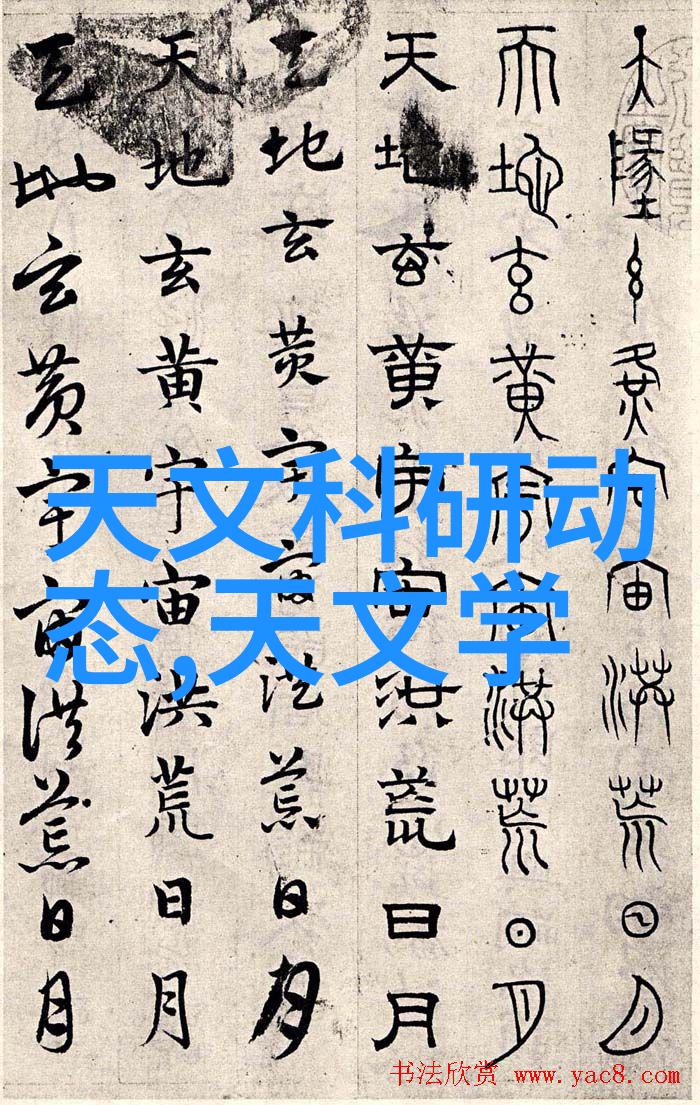 天墬玄黃宇宙洪荒日月
天地玄黃宇宙洪荒日月
天地玄黃宇宙洪荒日月
天地玄黃宇宙洪荒日月
天地玄黃宇宙洪荒日月
天地玄黃宇宙洪荒日月
天文科研动
态,天文学
书法欣赏 www.yac8.com